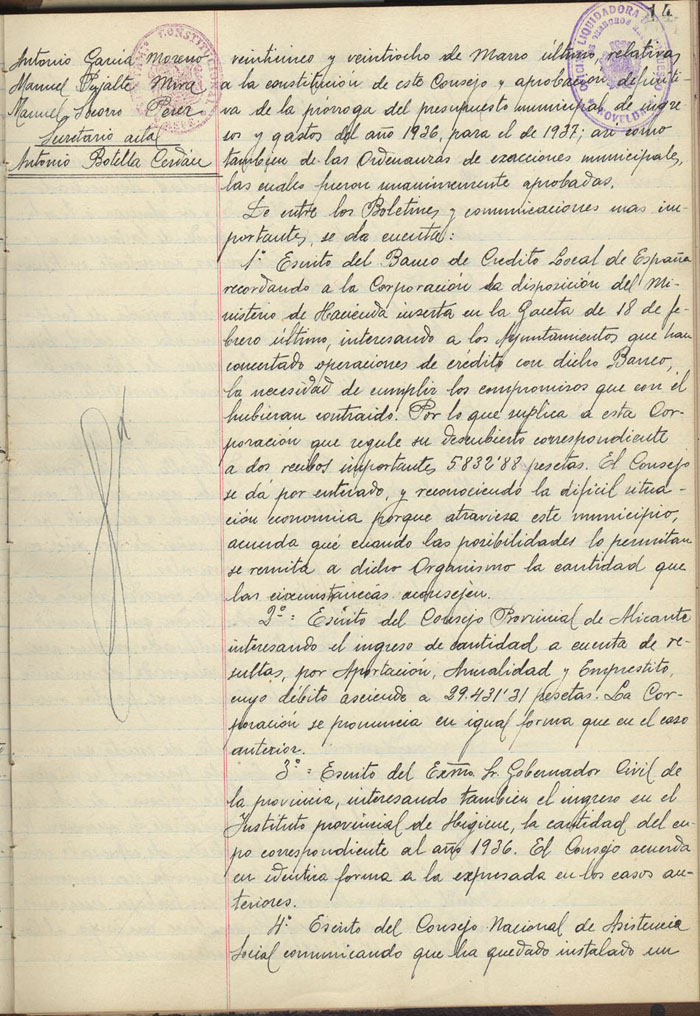 14
Antonio García Moreno
Manuel Pujalte Mira
Manuel Iborro Pérez
Secretario acctal
Antonio Botella Cerdán
veinticinco y veintiocho de Marzo último relativas
a la constitución de este Consejo y aprobación definiti
va de la prórroga del presupuesto municipal de ingre
sos y gastos del año 1936, para el de 1937; así como
tambien de las Ordenanzas de exacciones municipales,
las cuales fueron unanimemente aprobadas.
De entre los Boletines y comunicaciones mas im-
portantes, se da cuenta:
1º Escrito del Banco de Credito Local de España
recordando a la Corporación la disposición del Mi-
nisterio de Hacienda inserta en la Gaceta de 18 de fe-
brero último, interesando a los Ayuntamientos que han
concertado operaciones de crédito con dicho Banco,
la necesidad de cumplir los compromisos que con él
hubieran contraido. Por lo que suplica a esta Cor-
poración que regule su descubierto correspondiente
a dos recibos importantes 5832'88 pesetas. El Consejo
se dá por enterado, y reconociendo la dificil situa-
ción economica porque atraviesa este municipio,
acuerda qué cuando las posibilidades lo permitan
se remita a dicho Organismo la cantidad que
las circunstancias aconsejen.
2º = Escrito del Consejo Provincial de Alicante
interesando el ingreso de cantidad a cuenta de re-
sultas, por Aportación, Anualidad y Emprestito,
cuyo débito asciende a 29.431'31 pesetas. La Cor-
poración se pronuncia en igual forma que en el caso
anterior.
3º = Escrito del Exmo. Sr. Gobernador Civil de
la provincia, interesando tambien el ingreso en el
Instituto provincial de Higiene, la cantidad del cu-
po correspondiente al año 1936. El Consejo acuerda
en identica forma a la expresada en los casos an-
teriores.
4º Escrito del Consejo Nacional de Asistencia
Social comunicando que ha quedado instalado un